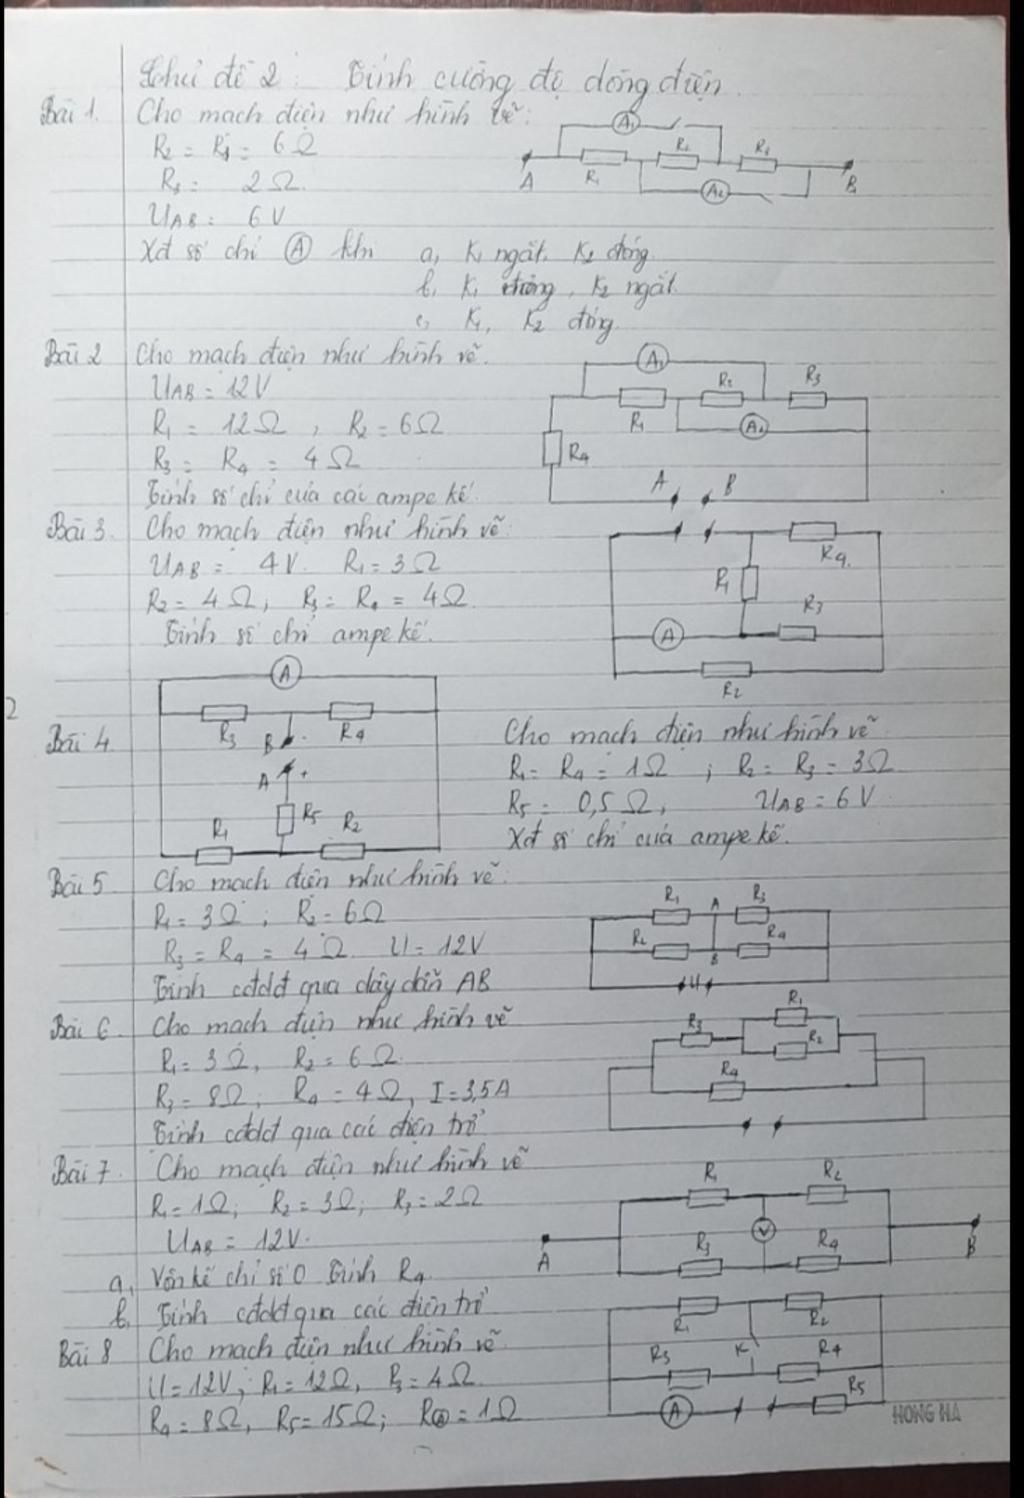 Chủ đề 2: Tính cường độ dòng điện.
Bài 1. Cho mạch điện như hình vẽ:
R2 = R3 = 6Ω
R1 = 2Ω.
UAB = 6V
Xđ số chỉ (A) khi a, K1 ngắt, K2 đóng
b, K1 đóng, K2 ngắt.
c, K1, K2 đóng.
A1
R1
R2
R3
A
A2
B
Bài 2 Cho mạch điện như hình vẽ.
UAB = 12V
R1 = 12Ω, R2 = 6Ω
R3 = R4 = 4Ω
Tính số chỉ của các ampe kế.
A1
R1
R2
R3
A2
R4
A
B
Bài 3. Cho mạch điện như hình vẽ:
UAB = 4V. R1 = 3Ω
R2 = 4Ω, R3 = R4 = 4Ω.
Tính số chỉ ampe kế.
R4
R1
R3
A
R2
2
Bài 4.
A
R3
B
R4
A +
R5
R1
R2
Cho mạch điện như hình vẽ
R1 = R4 = 1Ω; R2 = R3 = 3Ω
R5 = 0,5Ω, UAB = 6V
Xđ số chỉ của ampe kế.
Bài 5 Cho mạch điện như hình vẽ:
R1 = 3Ω; R2 = 6Ω
R3 = R4 = 4Ω. U = 12V
Tính cđdđ qua dây dẫn AB
R1
A
R3
R2
B
R4
U
Bài 6. Cho mạch điện như hình vẽ
R1 = 3Ω, R2 = 6Ω
R3 = 8Ω; R4 = 4Ω, I = 3,5A
Tính cđdđ qua các điện trở
R1
R3
R2
R4
Bài 7. Cho mạch điện như hình vẽ
R1 = 1Ω; R2 = 3Ω; R3 = 2Ω
UAB = 12V.
a, Vôn kế chỉ số 0 Tính R4
b, Tính cđdđ qua các điện trở
R1
R2
V
A
R3
R4
B
Bài 8 Cho mạch điện như hình vẽ
U = 12V; R1 = 12Ω, R3 = 4Ω
R4 = 8Ω, R5 = 15Ω; RA = 1Ω
R1
R2
R3
K
R4
A
R5
HONG HA